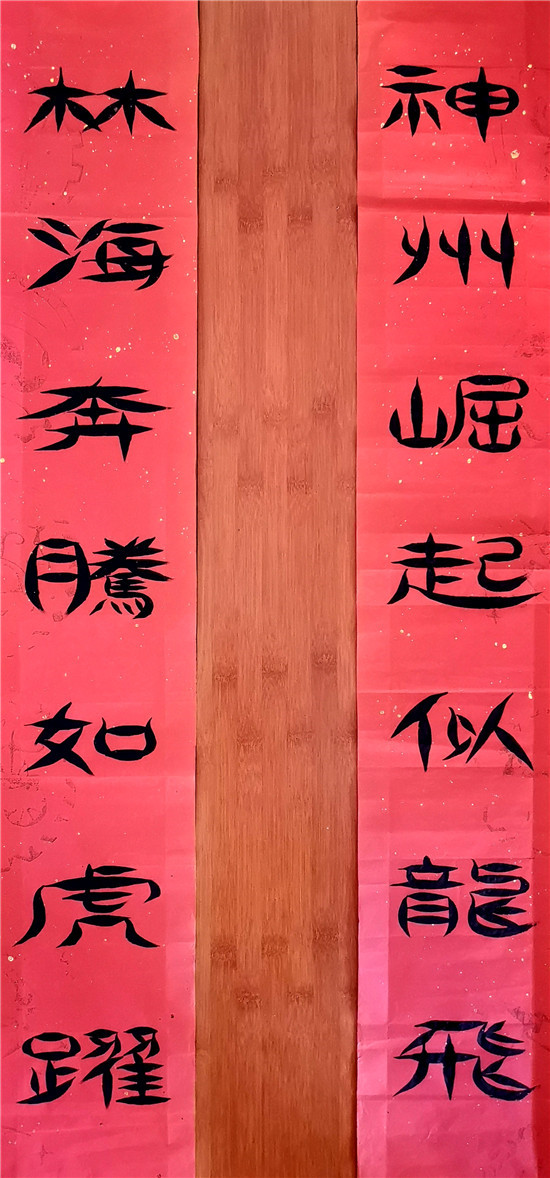 神州崛起似龍飛
林海奔騰如虎躍